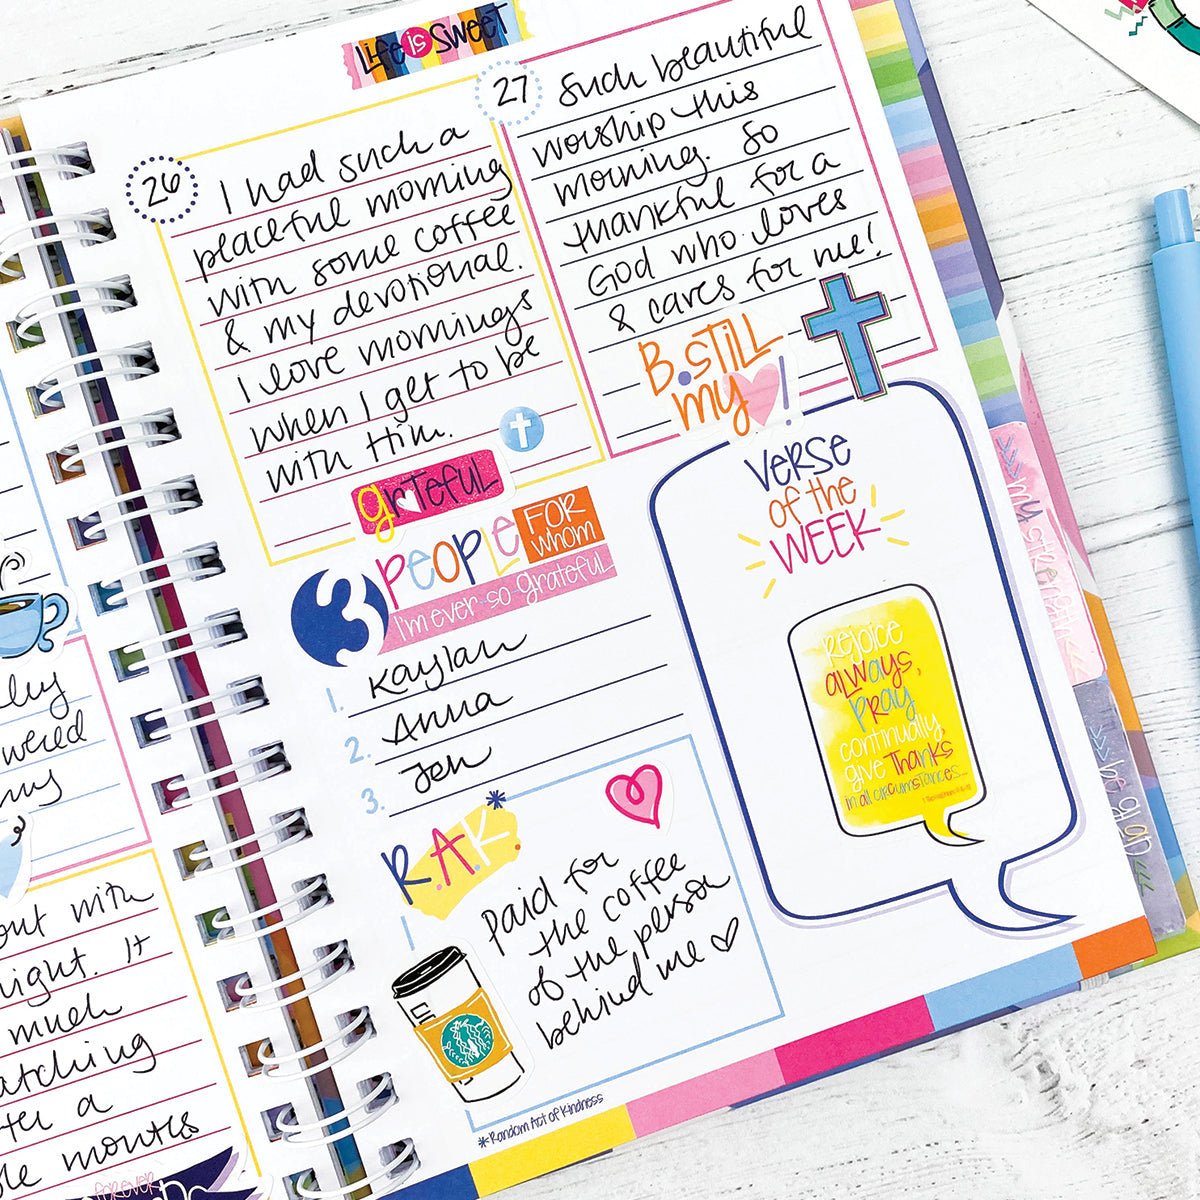 LiFe is SWEET
26
I had such a
peaceful morning
with some coffee
& my devotional.
I love mornings
when I get to be
with Him.
grateful
27
such beautiful
worship this
morning. So
thankful for a
God who loves
& cares for me!
B. STILL
my !
3 PEOPLE FOR whom
I'm ever so grateful
1. Kaylan
2. Anna
3. Jen
R.A.K.*
Paid for
the coffee
of the person
behind me
*Random Act of Kindness
VERSE
of the
WEEK
Rejoice
always,
Pray
continually
give Thanks
in all circumstances...
my strength
out with
night. It
much
atching
ter a
le months
forever